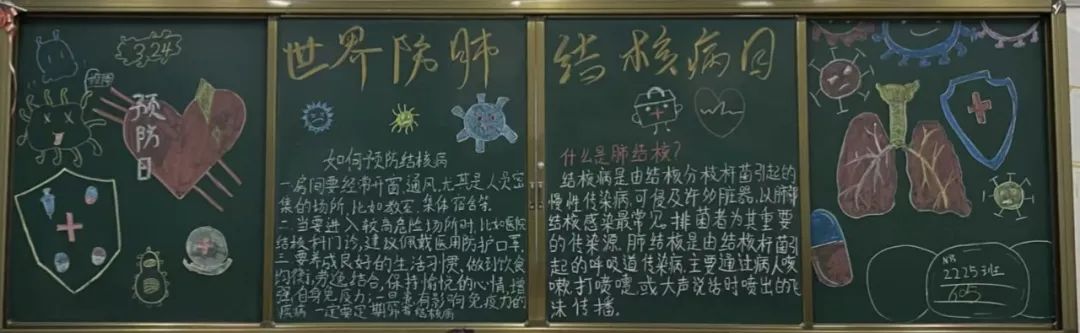 3.24
预
防
日
世界防肺
结核病日
如何预防结核病
一.房间要经常开窗,通风,尤其是人员密
集的场所,比如教室,集体宿舍等.
二.当要进入较高危险场所时,比如医院
结核科门诊,建议佩戴医用防护口罩.
三.要养成良好的生活习惯,做到饮食
均衡,劳逸结合,保持愉悦的心情,增
强自身免疫力;
患有影响免疫力的
疾病,一定要定期筛查结核病
什么是肺结核?
结核病是由结核分枝杆菌引起的
慢性传染病,可侵及许多脏器,以肺部
结核感染最常见.排菌者为其重要
的传染源.肺结核是由结核杆菌引
起的呼吸道传染病,主要通过病人咳
嗽,打喷嚏,或大声说话时喷出的飞
沫传播.
2225班
605